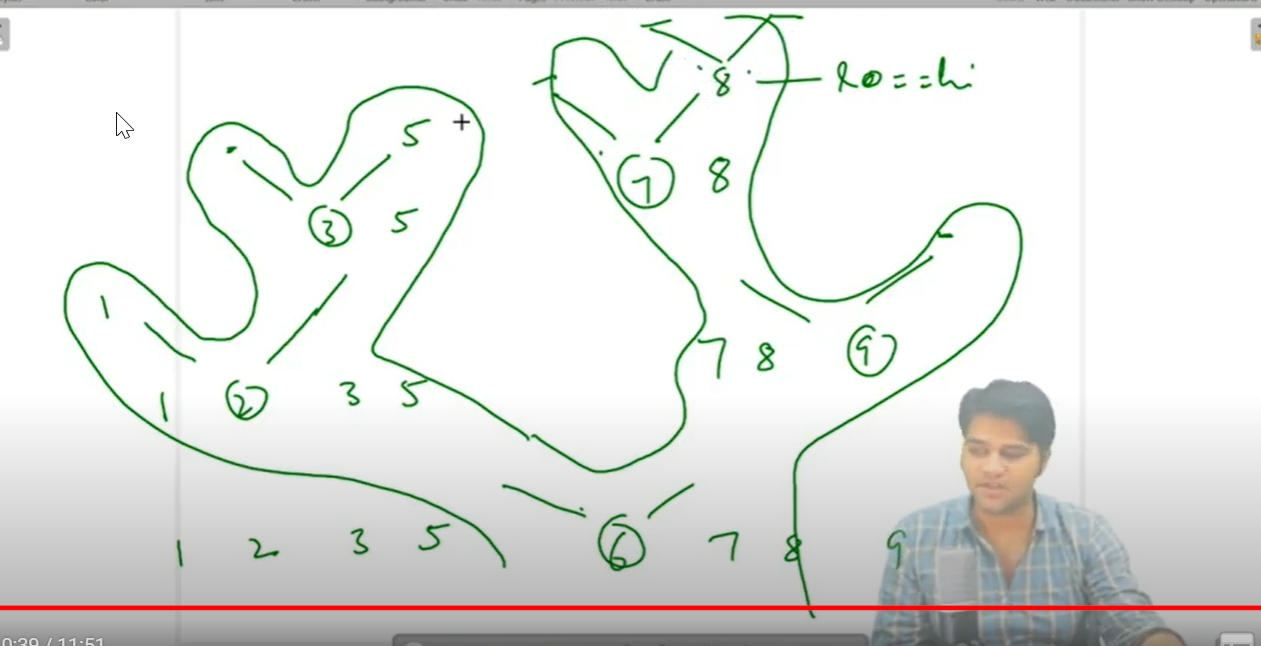 8 lo==hi
5
7 8
3 5
1
7 8 9
1 2 3 5
1 2 3 5 6 7 8 9
0:39 / 11:51